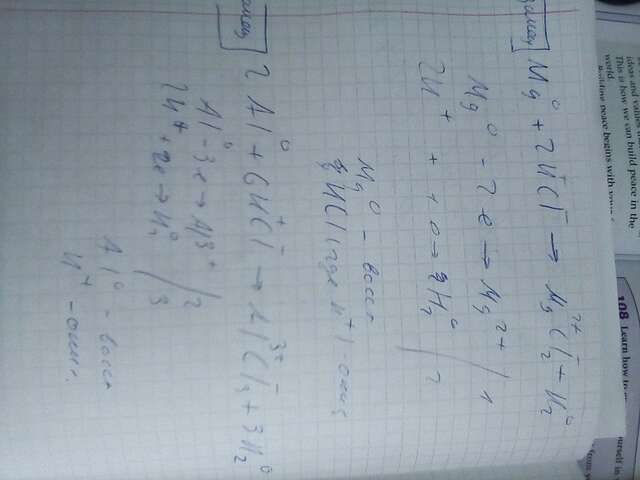 замещ
Mg⁰ + 2H⁺Cl⁻ → Mg²⁺Cl₂⁻ + H₂⁰
Mg⁰ - 2e → Mg²⁺ / 1
2H⁺ + + 0 → H₂⁰ / 2
Mg⁰ - восст
HCl (где H⁺) - окис
замещ
2Al⁰ + 6H⁺Cl⁻ → Al³⁺Cl₃⁻ + 3H₂⁰
Al⁰ - 3e → Al3⁺ / 2
2H⁺ + 2e → H₂⁰ / 3
Al⁰ - восст
H⁺ - окис.
ideas and values
This is how we can build peace in the
world.
peace begins with
108 Learn how to
yourself in